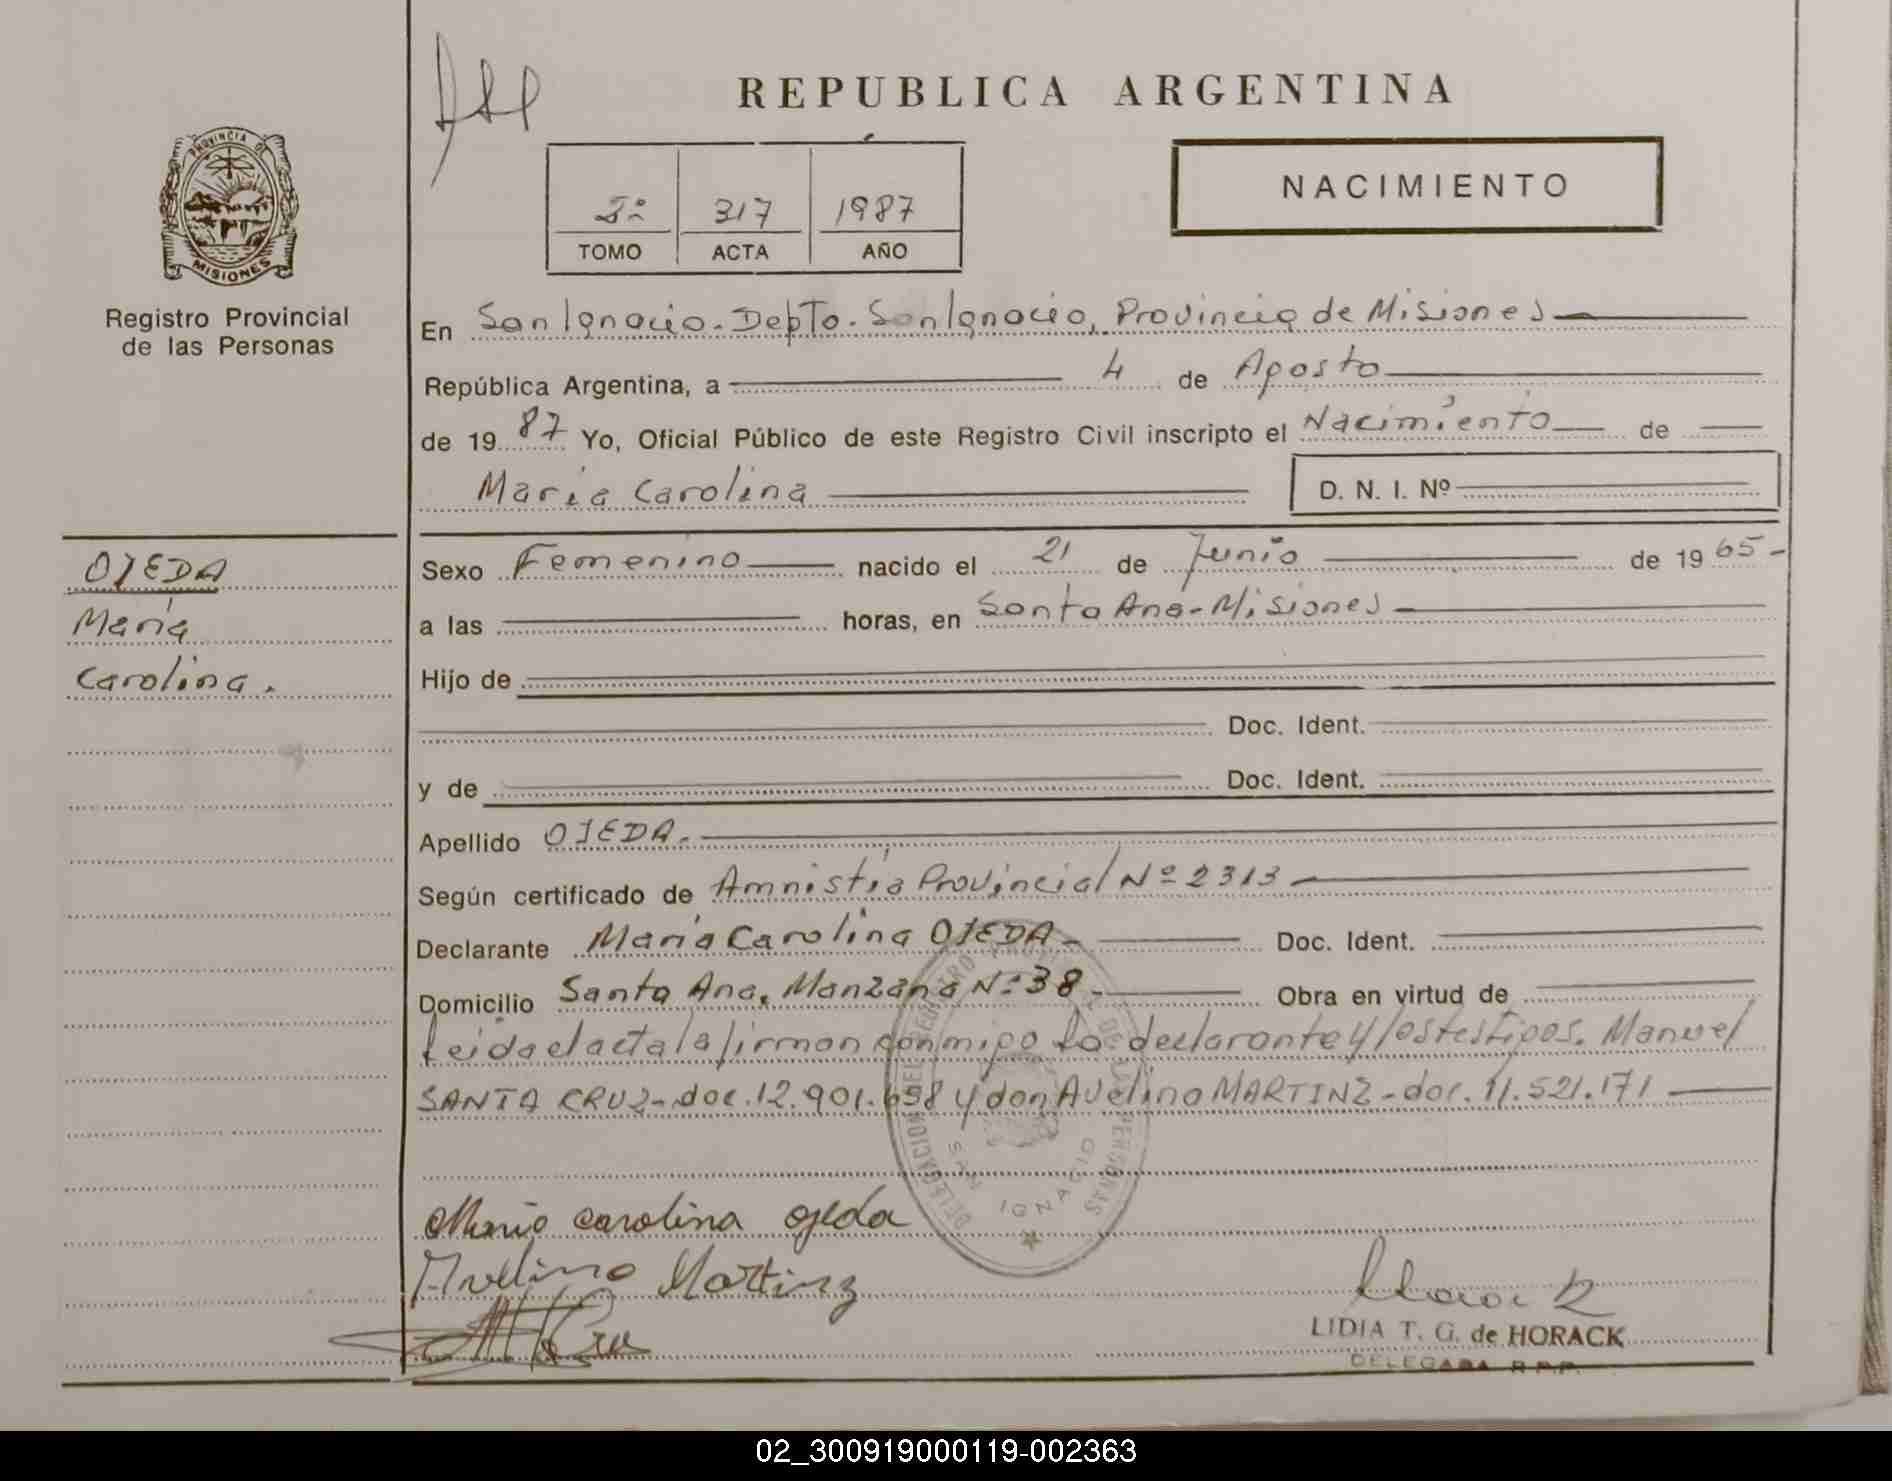 REPUBLICA ARGENTINA
PROVINCIA DE
MISIONES
Registro Provincial
de las Personas
1º 317 1987
TOMO ACTA AÑO
NACIMIENTO
En San Ignacio. Depto. San Ignacio, Provincia de Misiones
República Argentina, a 4 de Agosto
de 1987 Yo, Oficial Público de este Registro Civil inscripto el Nacimiento de
María Carolina D. N. I. Nº
OJEDA
María
Carolina.
Sexo Femenino nacido el 21 de Junio de 1965-
a las horas, en Santa Ana-Misiones
Hijo de
Doc. Ident.
y de Doc. Ident.
Apellido OJEDA.
Según certificado de Amnistía Provincial Nº 2313
Declarante María Carolina OJEDA- Doc. Ident.
Domicilio Santa Ana, Manzana Nº 38- Obra en virtud de
Leida el acta la firman conmigo la declarante y los testigos. Manuel
SANTA CRUZ-doc.12.901.698 y don Avelino MARTINZ-doc. 11.521.171
DELEGACION DEL REGISTRO DE LAS PERSONAS
SAN IGNACIO
Maria Carolina Ojeda
Avelino Martinz
LIDIA T. G. de HORACK
DELEGADA R.P.P.
02_300919000119-002363